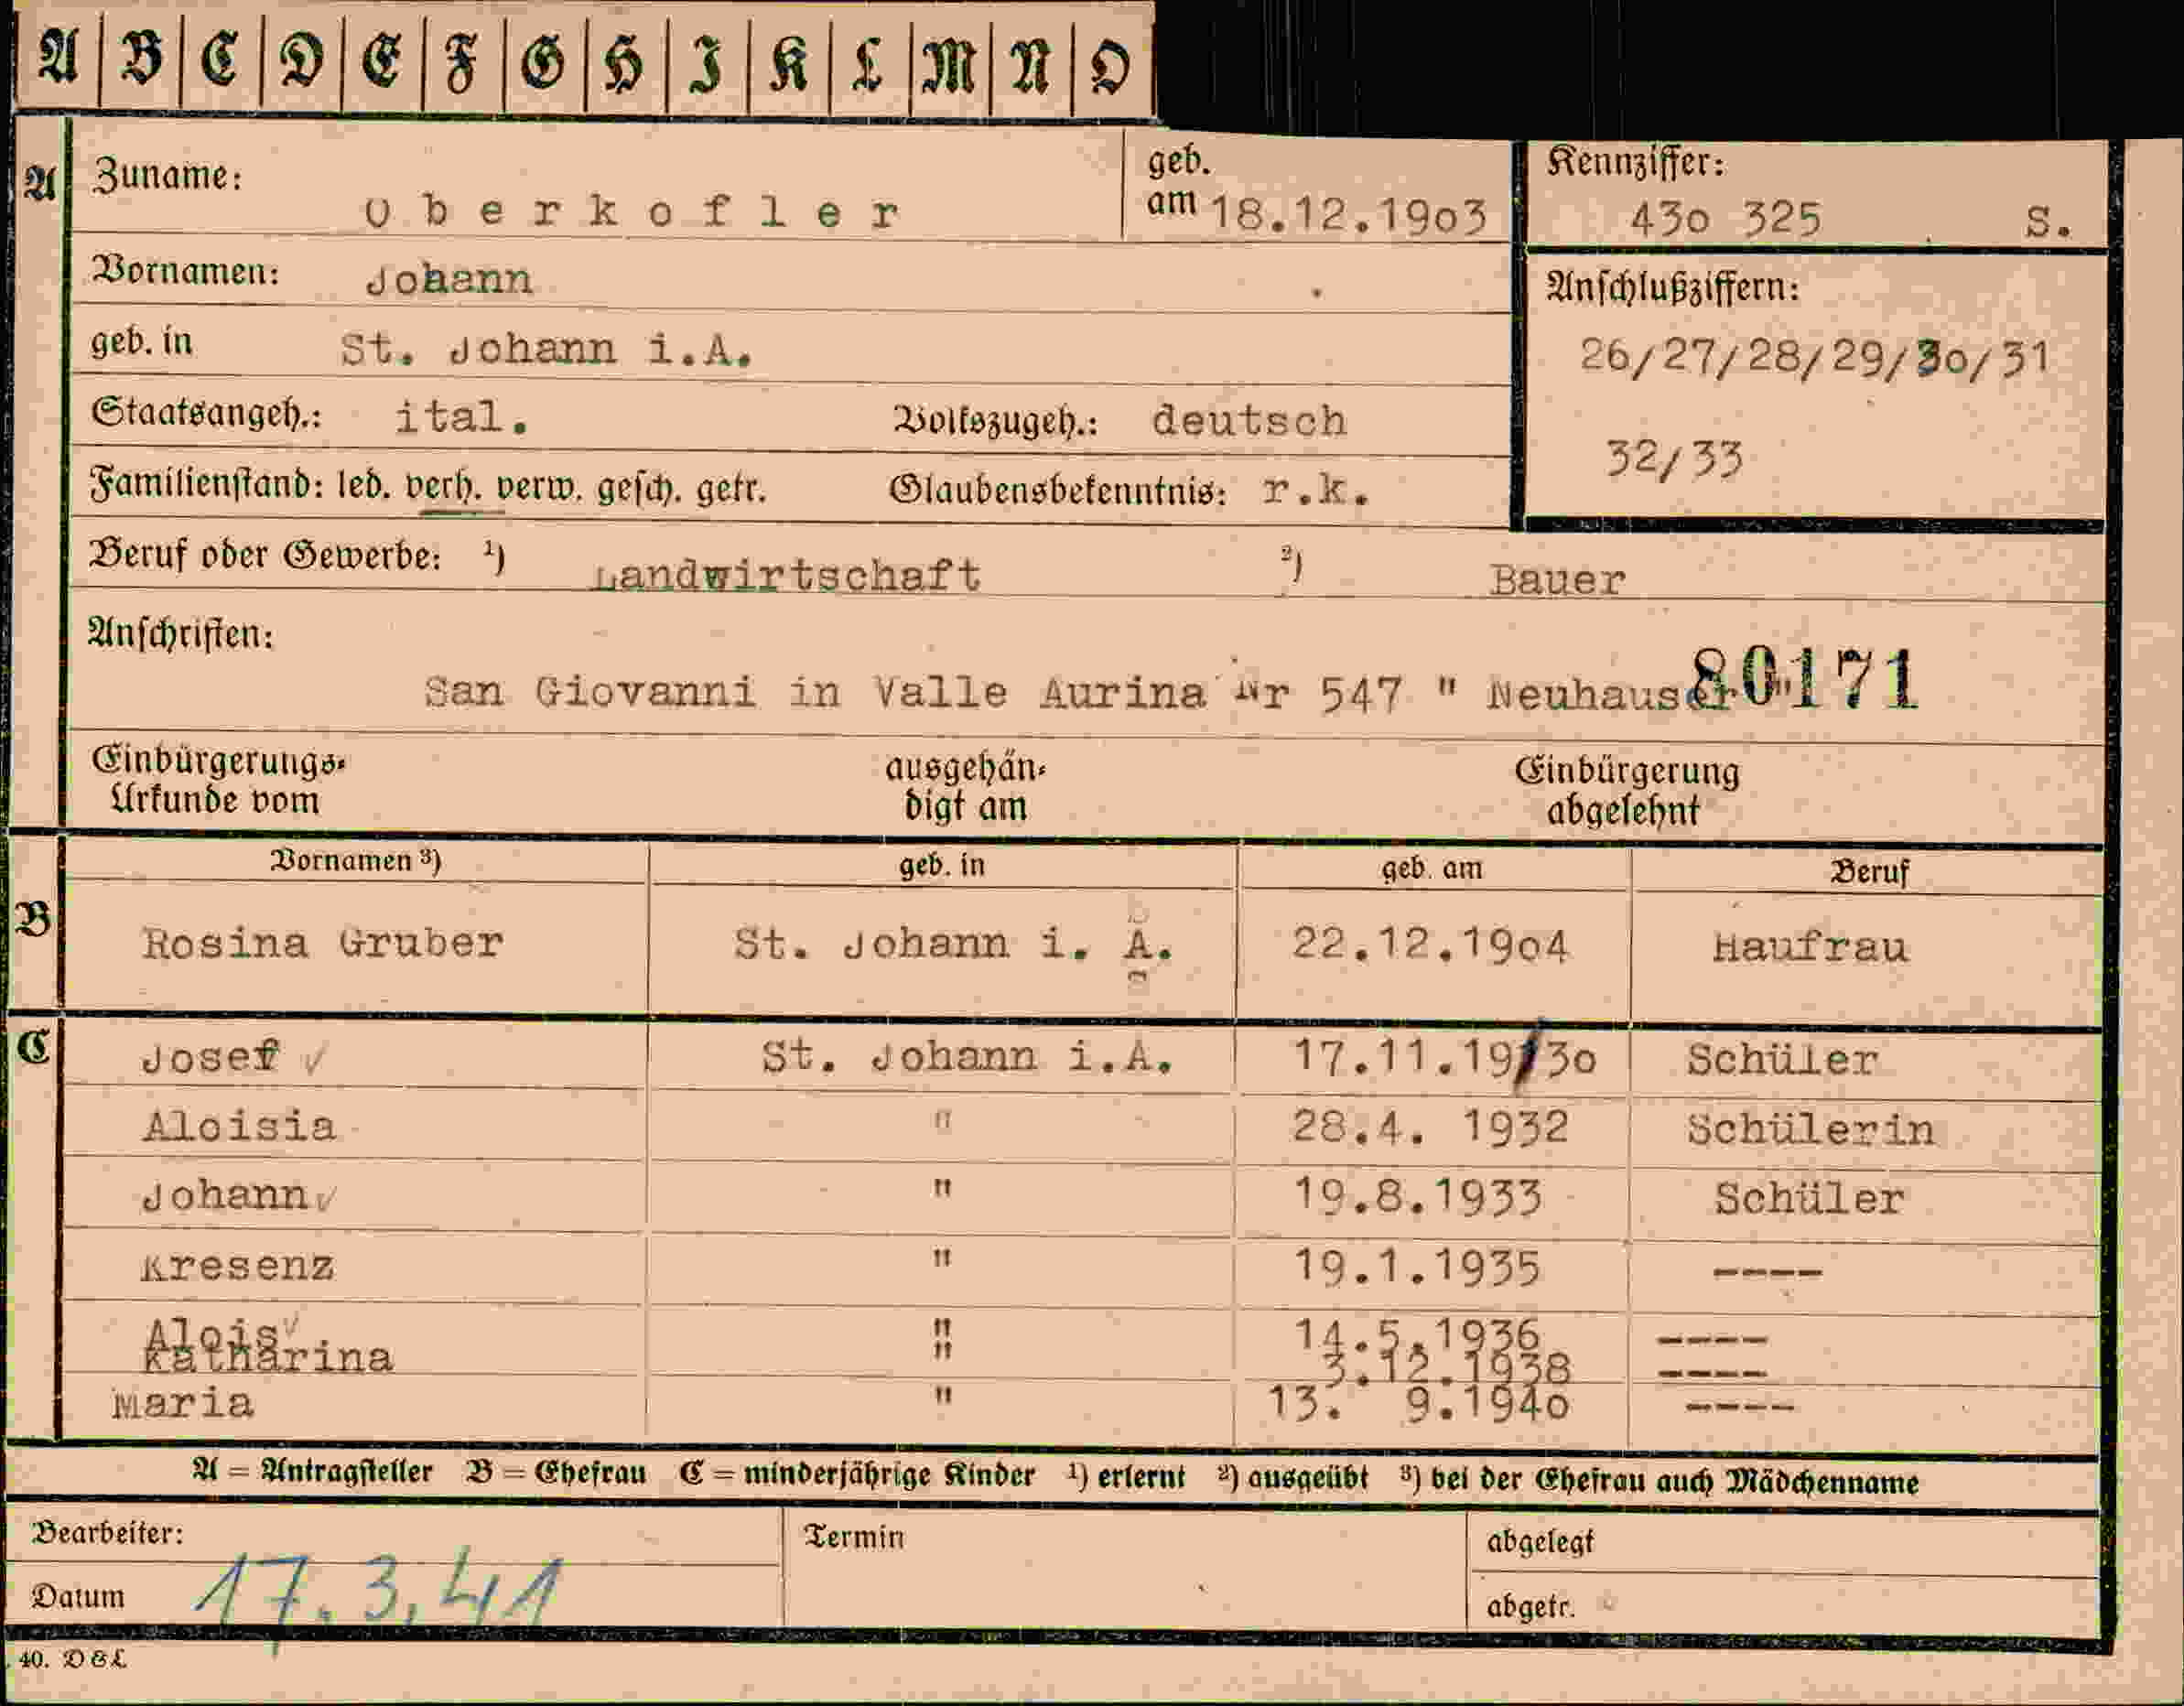 A B C D E F G H I K L M N O
A Zuname: Oberkofler geb. am 18.12.1903 Kennziffer: 430 325 S.
Vornamen: Johann Anschlußziffern:
geb. in St. Johann i.A. 26/27/28/29/30/31
Staatsangeh.: ital. Volkszugeh.: deutsch 32/33
Familienstand: led. verh. verw. gesch. getr. Glaubensbekenntnis: r.k.
Beruf oder Gewerbe: 1) Landwirtschaft 2) Bauer
Anschriften:
San Giovanni in Valle Aurina Nr 547 " Neuhauser "
80171
Einbürgerungs-Urkunde vom ausgehändigt am Einbürgerung abgelehnt
Vornamen 3) geb. in geb. am Beruf
B Rosina Gruber St. Johann i. A. 22.12.1904 Haufrau
C Josef St. Johann i.A. 17.11.19/30 Schüler
Aloisia " 28.4. 1932 Schülerin
Johann " 19.8.1933 Schüler
Kresenz " 19.1.1935 ----
Alois " 14.5.1936 ----
Katharina " 3.12.1938 ----
Maria " 13. 9.1940 ----
A = Antragsteller B = Ehefrau C = minderjährige Kinder 1) erlernt 2) ausgeübt 3) bei der Ehefrau auch Mädchenname
Bearbeiter: Termin abgelegt
Datum 17.3.41 abgetr.
40. DGL